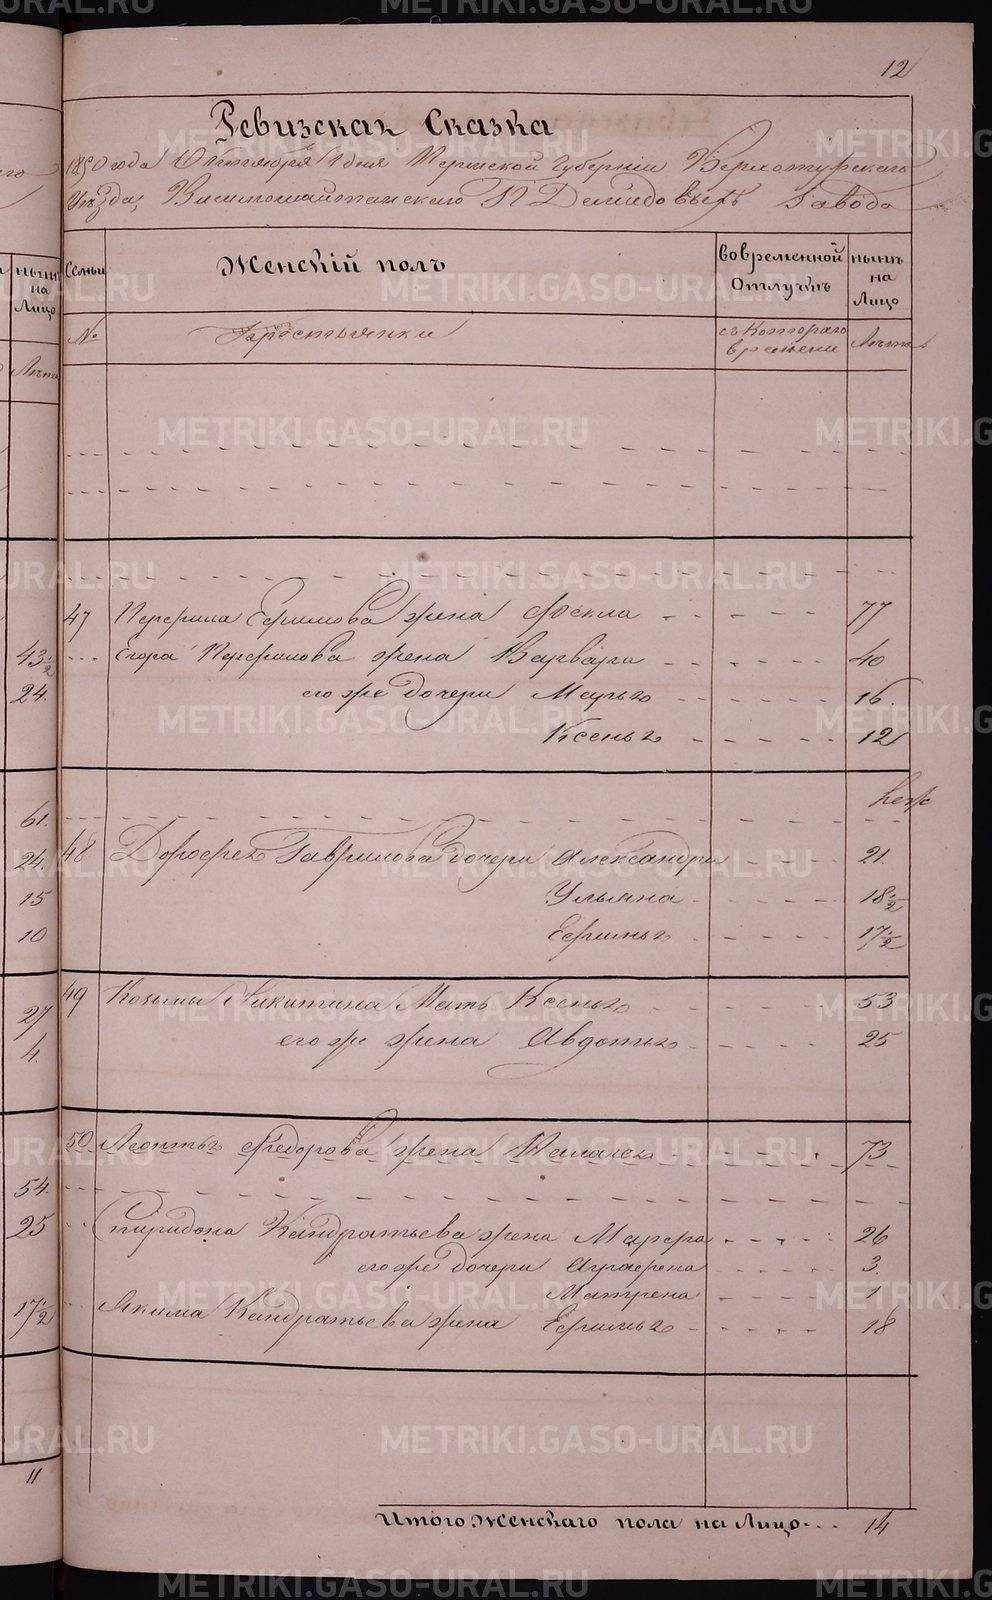 12
Ревизская Сказка
1850 года Октября 1 дня Пермской Губернiи Верхотурского
Уѣзда, Висимошайтанского Н Демидовыхъ Завода
Семьи
Женскiй полъ
Вовременной Отлучкѣ
нынѣ на Лицо
№
Крестьянки
съ Котораго времени
Лѣта
47 Перфила Ефимова жена Фекла 77
Егора Перфилова жена Варвара 40
его же дочери Марья 16
Ксенья 12
48 Дорофея Гаврилова дочери Александра 21.
Ульяна 18 1/2
Ефимья 17 1/2
49 Козьмы Никитина Мать Ксенья 53
его же жена Авдотья 25
50 Леонтья Федорова жена Палагея 73
Спиридона Кандратьева жена Марфа 26
его же дочери Аграфена 3.
Матрена 1
Якима Кандратьева жена Ефимья 18
Итого Женскаго пола на Лицо... 14
нынѣ
на
Лицо
Лѣта
43 1/2
24.
61.
24.
15
10
27
4.
54.
25
17 1/2
11
METRIKI.GASO-URAL.RU